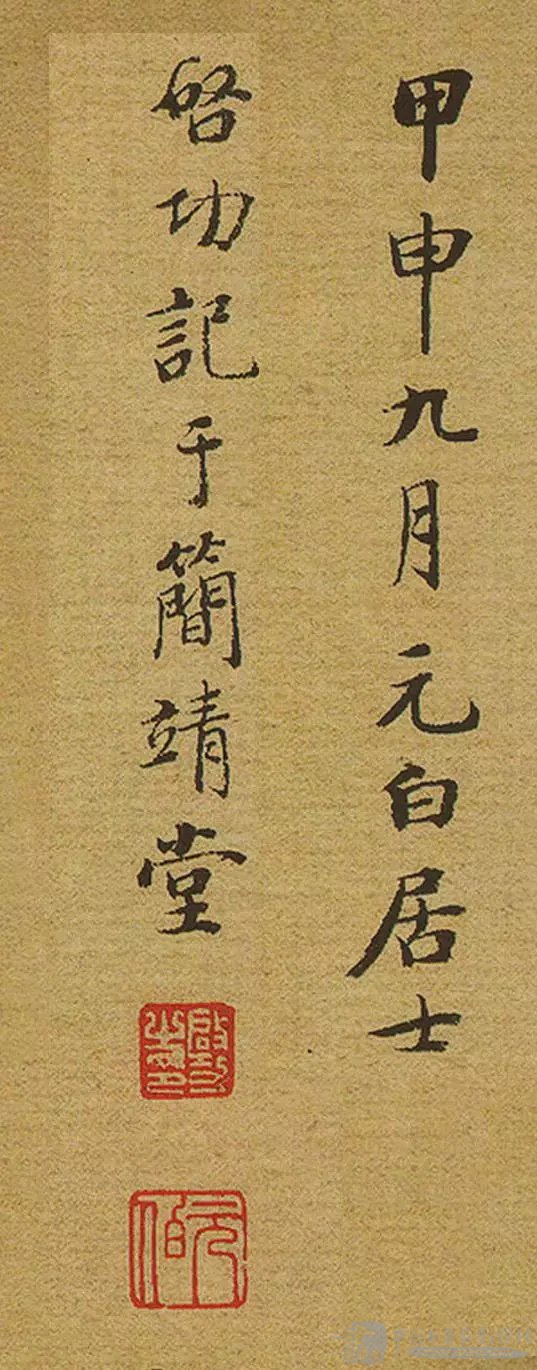 甲申九月元白居士
啓功記于簡靖堂